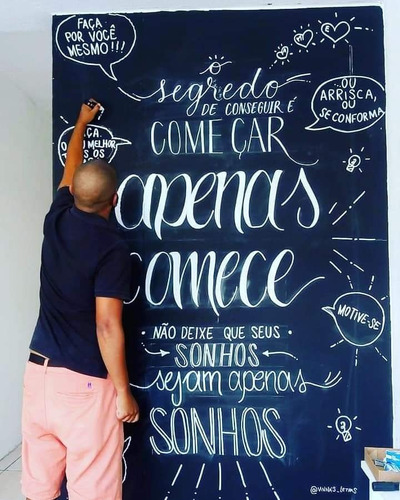 FAÇA
POR VOCÊ
MESMO!!!
O
segredo
DE CONSEGUIR É
COMEÇAR
apenas
comece
OU
ARRISCA,
OU
SE CONFORMA
MELHOR
OS
MOTIVE-SE
• NÃO DEIXE QUE SEUS •
SONHOS
sejam apenas
SONHOS